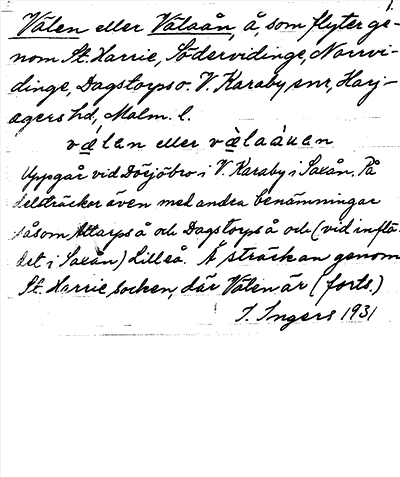 1.
Välen eller Välaån, å, som flyter ge-
nom St. Harrie, Södervidinge, Norrvi-
dinge, Dagstorps o. V. Karaby snr, Harj-
agers hd, Malm. l.
välan eller vàlaáuan
Uppgår vid Dösjöbro i V. Karaby i Saxån. På
delsträckor även med andra benämningar
såsom Attarps å och Dagstorps å och (vid inflö-
det i Saxån) Lilleå. Å sträckan genom
St. Harrie socken, där Välen är (forts.)
I. Ingers 1931